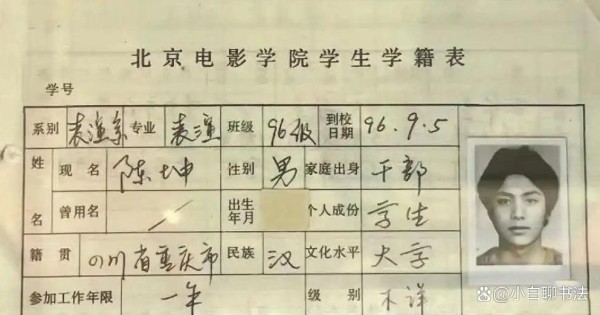 北京电影学院学生学籍表
学号
系别 表演系 专业 表演 班级 96级 到校日期 96.9.5
姓名 现名 陈坤 性别 男 家庭出身 干部
曾用名 / 出生年月 个人成份 学生
籍贯 四川省重庆市 民族 汉 文化水平 大学
参加工作年限 一年 级别 不详
@小白聊书法